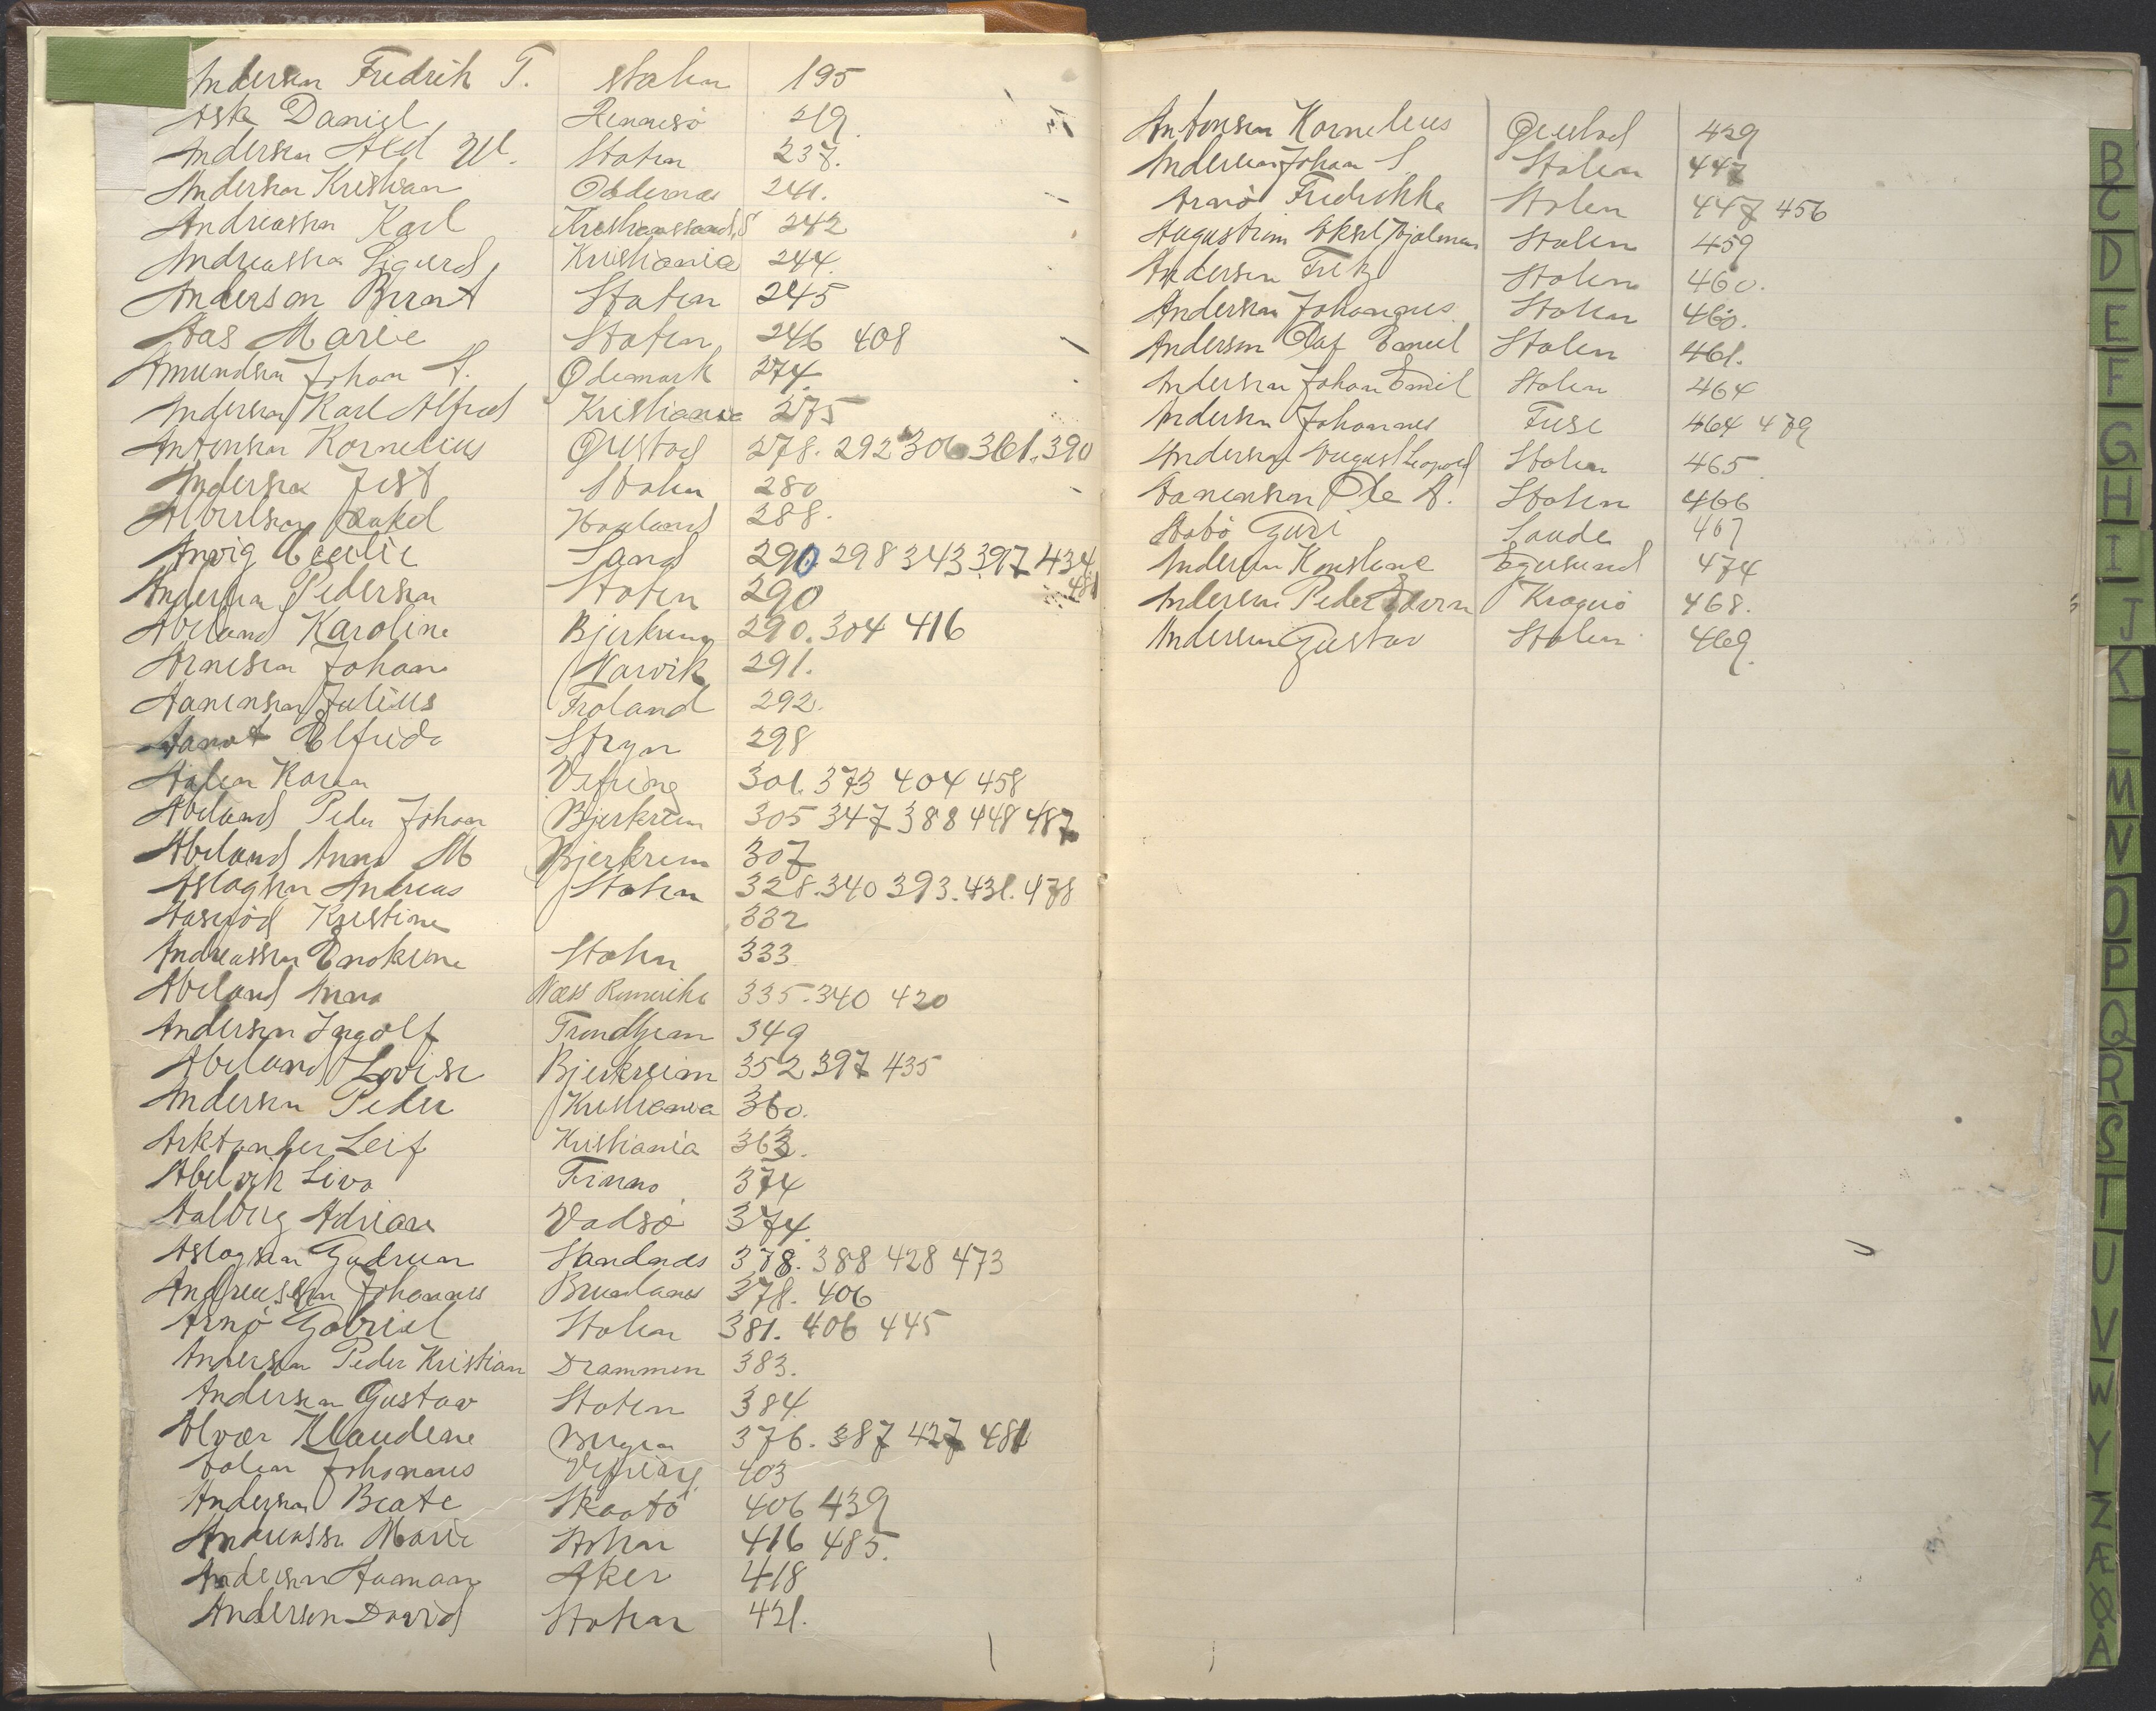 Andersen Fredrik T. Staten 195
Ask Daniel Rennesö 219.
Andersen Alf W. Staten 237.
Andersen Kristian 241.
Andreassen Karl Kristianssand S 242
Andreassen Sigurd Kristiania 244.
Anderson Bernt Staten 245
Aas Marie Staten 246 408
Amundsen Johan A. Ödemark 274.
Andersen Karl Alfred Kristiania 275
Antonsen Kornelius Qvestad 278. 292 306 361. 390
Andersen Jest Staten 280
Albertsen Hauland 288.
Anvig Cecilie Sand 290 298 343 397 434
481
Andersen Pedersen Staten 290
Abeland Karoline Bjerkreim 290. 304 416
Arnesen Johan Narvik 291.
Aanensen Julius Froland 292.
Elfrida Stryn 298
Aalen Karen Vefring 301. 373 404 458
Abeland Peder Johan Bjerkreim 305 347 388 448 487
Abeland Anna M Bjerkreim 307
Aslagsen Andreas Staten 328. 340 393. 431. 478
Kristine 332
Andreassen Enokine Staten 333
Abeland Anna Næss Romerike 335. 340 420
Andersen Ingolf Trondhjem 349
Abeland Lovise Bjerkreim 352 397 435
Andersen Peder Kristiania 360.
Arktander Leif Kristiania 363.
Abelvik Liva 374
Aalberg Adrian Vadsö 374.
Aslagsen Gudrun Sandnæs 378. 388 428 473
Andreassen Johannes Brunlanes 378. 406
Arnö Gabriel Staten 381. 406 445
Andersen Peder Kristian Drammen 383.
Andersen Gustav Staten 384.
Alvær Klaudine Bergen 376. 387 427 481
Aalen Johannes Vefring 403
Andersen Beate Skaatö 406 439
Andreassen Marie Staten 416 485.
Andersen Aamann Aker 418
Anderson David Staten 421.
Antonsen Kornelius Qvestad 429
Andersen Johan S. Staten 447
Arnö Fredrikke Staten 447 456
Augustsen Aksel Hjalmar Staten 459
Andersen Fritz Staten 460.
Andersen Johannes Staten 460.
Andersen Olaf Emil Staten 461.
Andersen Johan Emil Staten 464
Andersen Johannes Fuse 464 479
Andersen August Leopold Staten 465
Aanensen Ole A. Staten 466
Aabö Guri Saude 467
Andersen Konstanse Egersund 474
Andersen Peder Edvin Kragerö 468.
Andersen Gustav Staten 469.
B
C
D
E
F
G
H
I
J
K
M
N
O
P
Q
R
S
T
U
V
W
Y
Z
Æ
Ø
Å